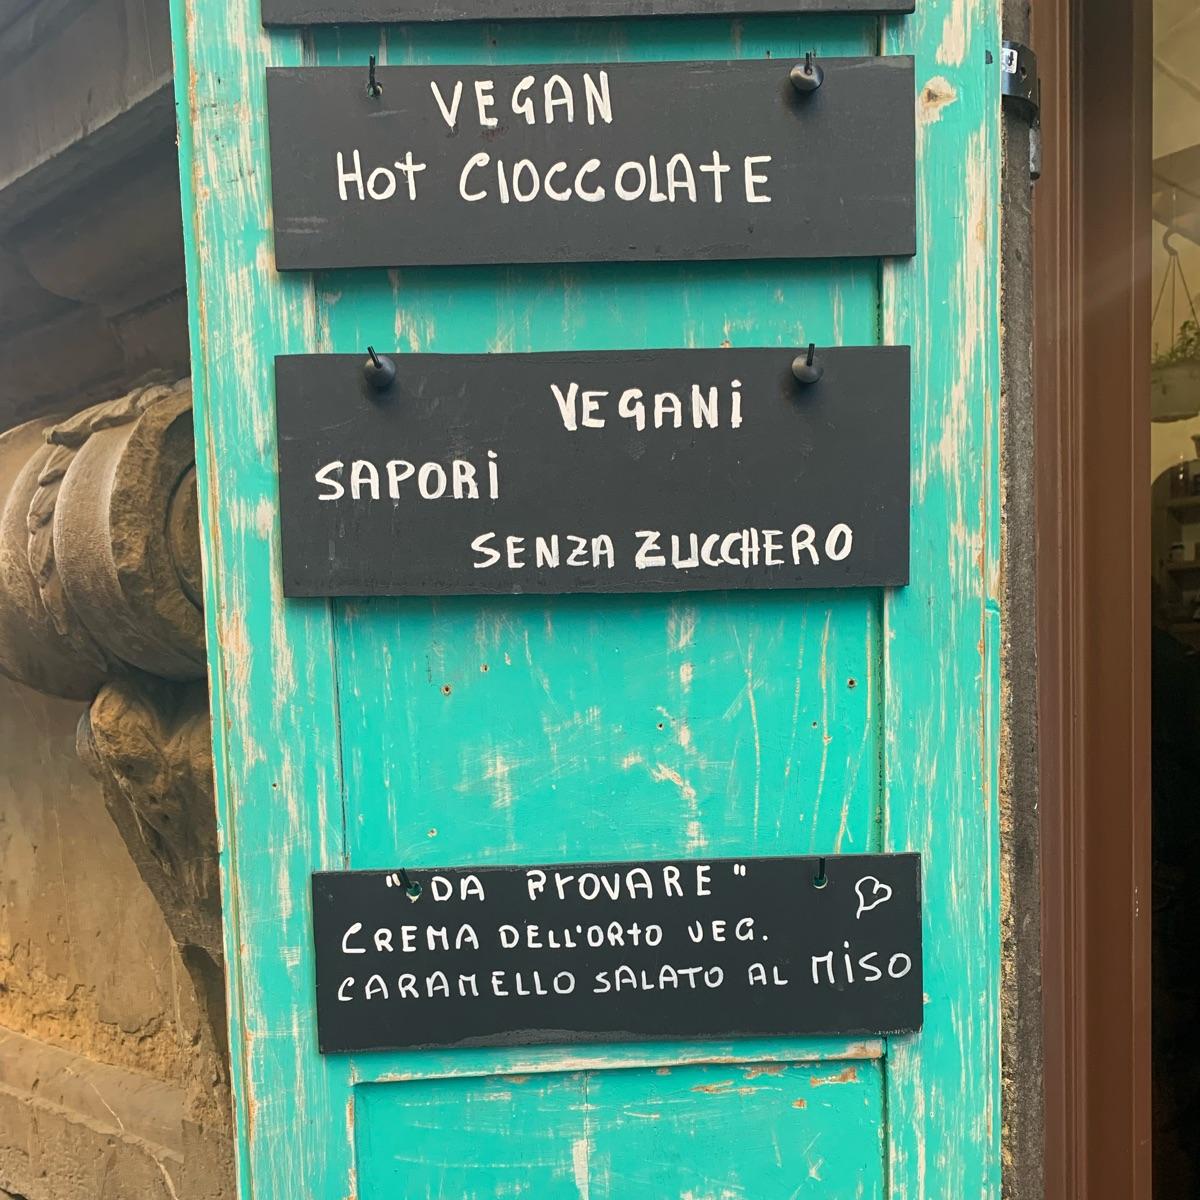 VEGAN
HOT CIOCCOLATE
VEGANI
SAPORI
SENZA ZUCCHERO
"DA PROVARE"
CREMA DELL'ORTO VEG.
CARAMELLO SALATO AL MISO